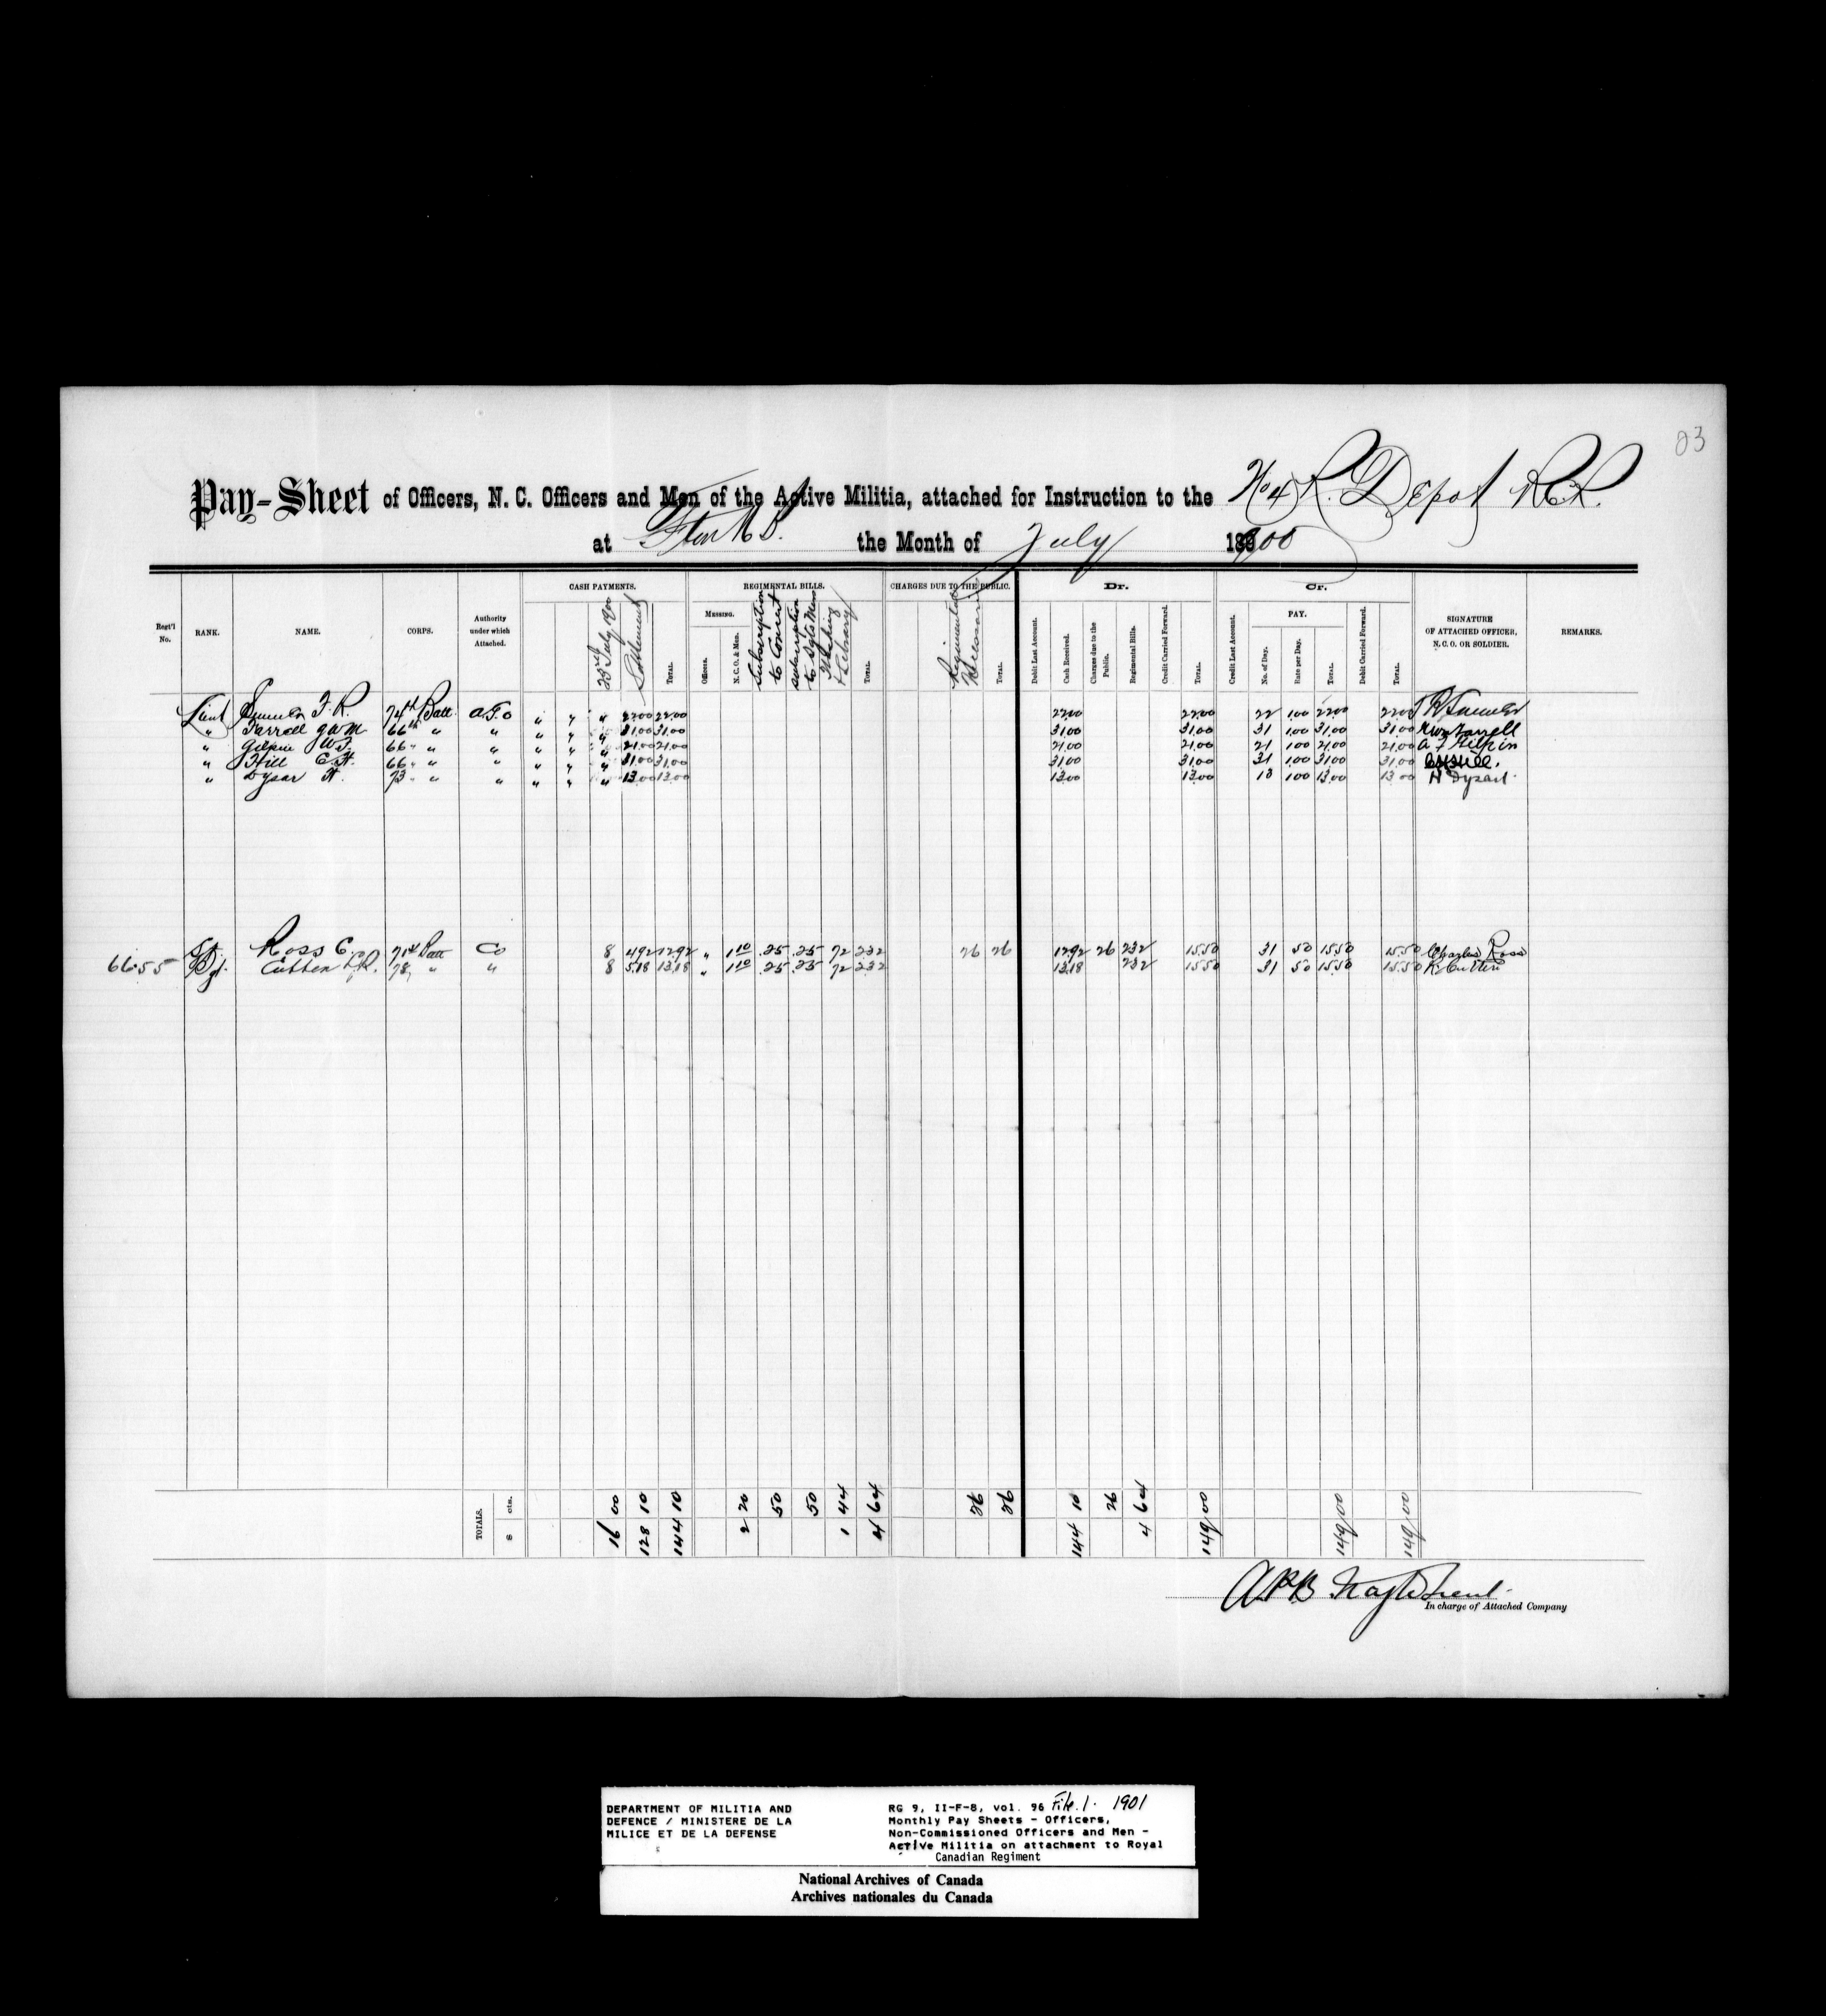 83
Pay-Sheet of Officers, N. C. Officers and Men of the Active Militia, attached for Instruction to the No 4 R. Depot R.C.R.
at Fton N B. the Month of July 1900
Regt'l No. RANK. NAME. CORPS. Authority under which Attached. CASH PAYMENTS. REGIMENTAL BILLS. CHARGES DUE TO THE PUBLIC. Dr. Cr. SIGNATURE OF ATTACHED OFFICER, N. C. O. OR SOLDIER. REMARKS.
23rd July 1900 Settlement TOTAL. MESSING. Officers. N. C. O. & Men. Subscription to Concert Subscription to Sgts Mess Washing & Library TOTAL. Regimental Necessaries TOTAL. Debit Last Account. Cash Received. Charges due to the Public. Regimental Bills. Credit Carried Forward. TOTAL. Credit Last Account. PAY. No. of Day. Rate per Day. TOTAL. Debit Carried Forward. TOTAL.
Lieut F. R. 74th Batt. " " " 22.00 22.00 22.00 22.00 22 1.00 22.00 22.00
" Farrell G W M 66th " " " " " 31.00 31.00 31.00 31.00 31 1.00 31.00 31.00
" Gilpin 66" " " " " " 21.00 21.00 21.00 21.00 21 1.00 21.00 21.00 Gilpin
" Hill E H. 66" " " " " " 31.00 31.00 31.00 31.00 31 1.00 31.00 31.00
" Dysar H. 73" " " " " " 13.00 13.00 13.00 13.00 13 1.00 13.00 13.00 H Dysart.
Ross C. 71st Batt Co 8 4.92 12.92 " 1 10 .25 .25 72 2.32 26 26 12.92 26 2.32 15.50 31 50 15.50 15.50 Charles Ross
6655 Cutten R. 78 " " 8 5.18 13.18 " 1 10 .25 .25 72 2.32 13.18 2.32 15.50 31 50 15.50 15.50 R. Cutten
TOTALS. $ cts. 16 00 128 10 144 10 2 20 50 50 1 44 4 64 26 26 144 10 26 4 64 149 00 149 00 149 00
In charge of Attached Company
DEPARTMENT OF MILITIA AND
DEFENCE / MINISTERE DE LA
MILICE ET DE LA DEFENSE
RG 9, II-F-8, vol. 96 File. 1. 1901
Monthly Pay Sheets - Officers,
Non-Commissioned Officers and Men -
Active Militia on attachment to Royal
Canadian Regiment
National Archives of Canada
Archives nationales du Canada